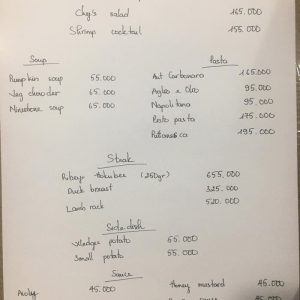 Chef's salad 165.000
Shrimp cocktail 155.000
Soup
Pumpkin soup 55.000
Veg chowder 65.000
Minestone soup 65.000
Pasta
Carbonara 165.000
Aglio e Olio 95.000
Napolitana 95.000
Pesto pasta 175.000
195.000
Steak
(250gr) 655.000
Duck breast 325.000
Lamb rack 520.000
Side dish
Wedges potato 65.000
Small potato 55.000
Sauce
45.000
Honey mustard 45.000